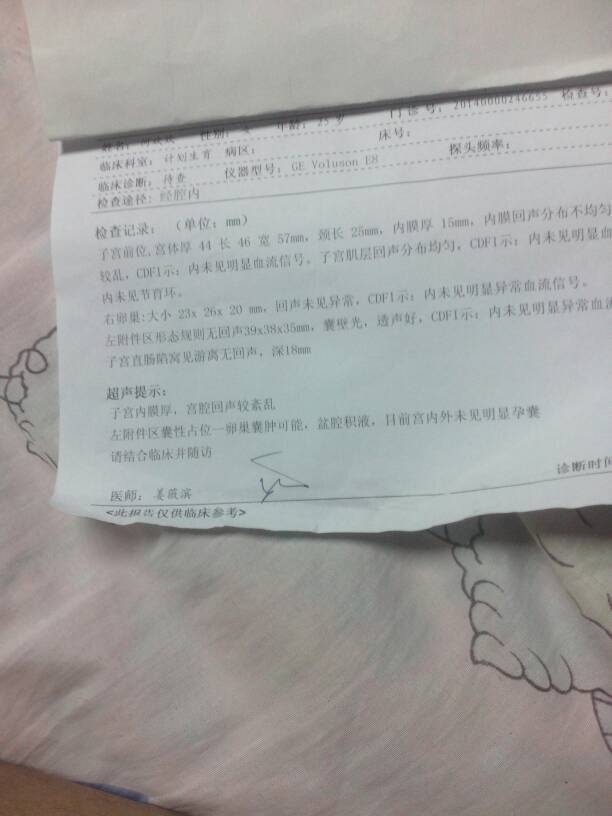 性别: 年龄: 25 岁 门诊号: 20140000246655 检查号:
临床科室: 计划生育 病区: 床号:
临床诊断: 待查 仪器型号: GE Voluson E8 探头频率:
检查途径: 经腔内
检查记录: (单位: mm)
子宫前位,宫体厚 44 长 46 宽 57mm, 颈长 25mm, 内膜厚 15mm, 内膜回声分布不均匀
较乱, CDFI示: 内未见明显血流信号。子宫肌层回声分布均匀, CDFI示: 内未见明显血
内未见节育环。
右卵巢:大小 23x 26x 20 mm, 回声未见异常, CDFI示: 内未见明显异常血流信号。
左附件区形态规则无回声39x38x35mm, 囊壁光, 透声好, CDFI示: 内未见明显异常血流
子宫直肠陷窝见游离无回声, 深18mm
超声提示:
子宫内膜厚, 宫腔回声较紊乱
左附件区囊性占位—卵巢囊肿可能, 盆腔积液, 目前宫内外未见明显孕囊
请结合临床并随访
诊断时间
医师: 姜薇滨
<此报告仅供临床参考>